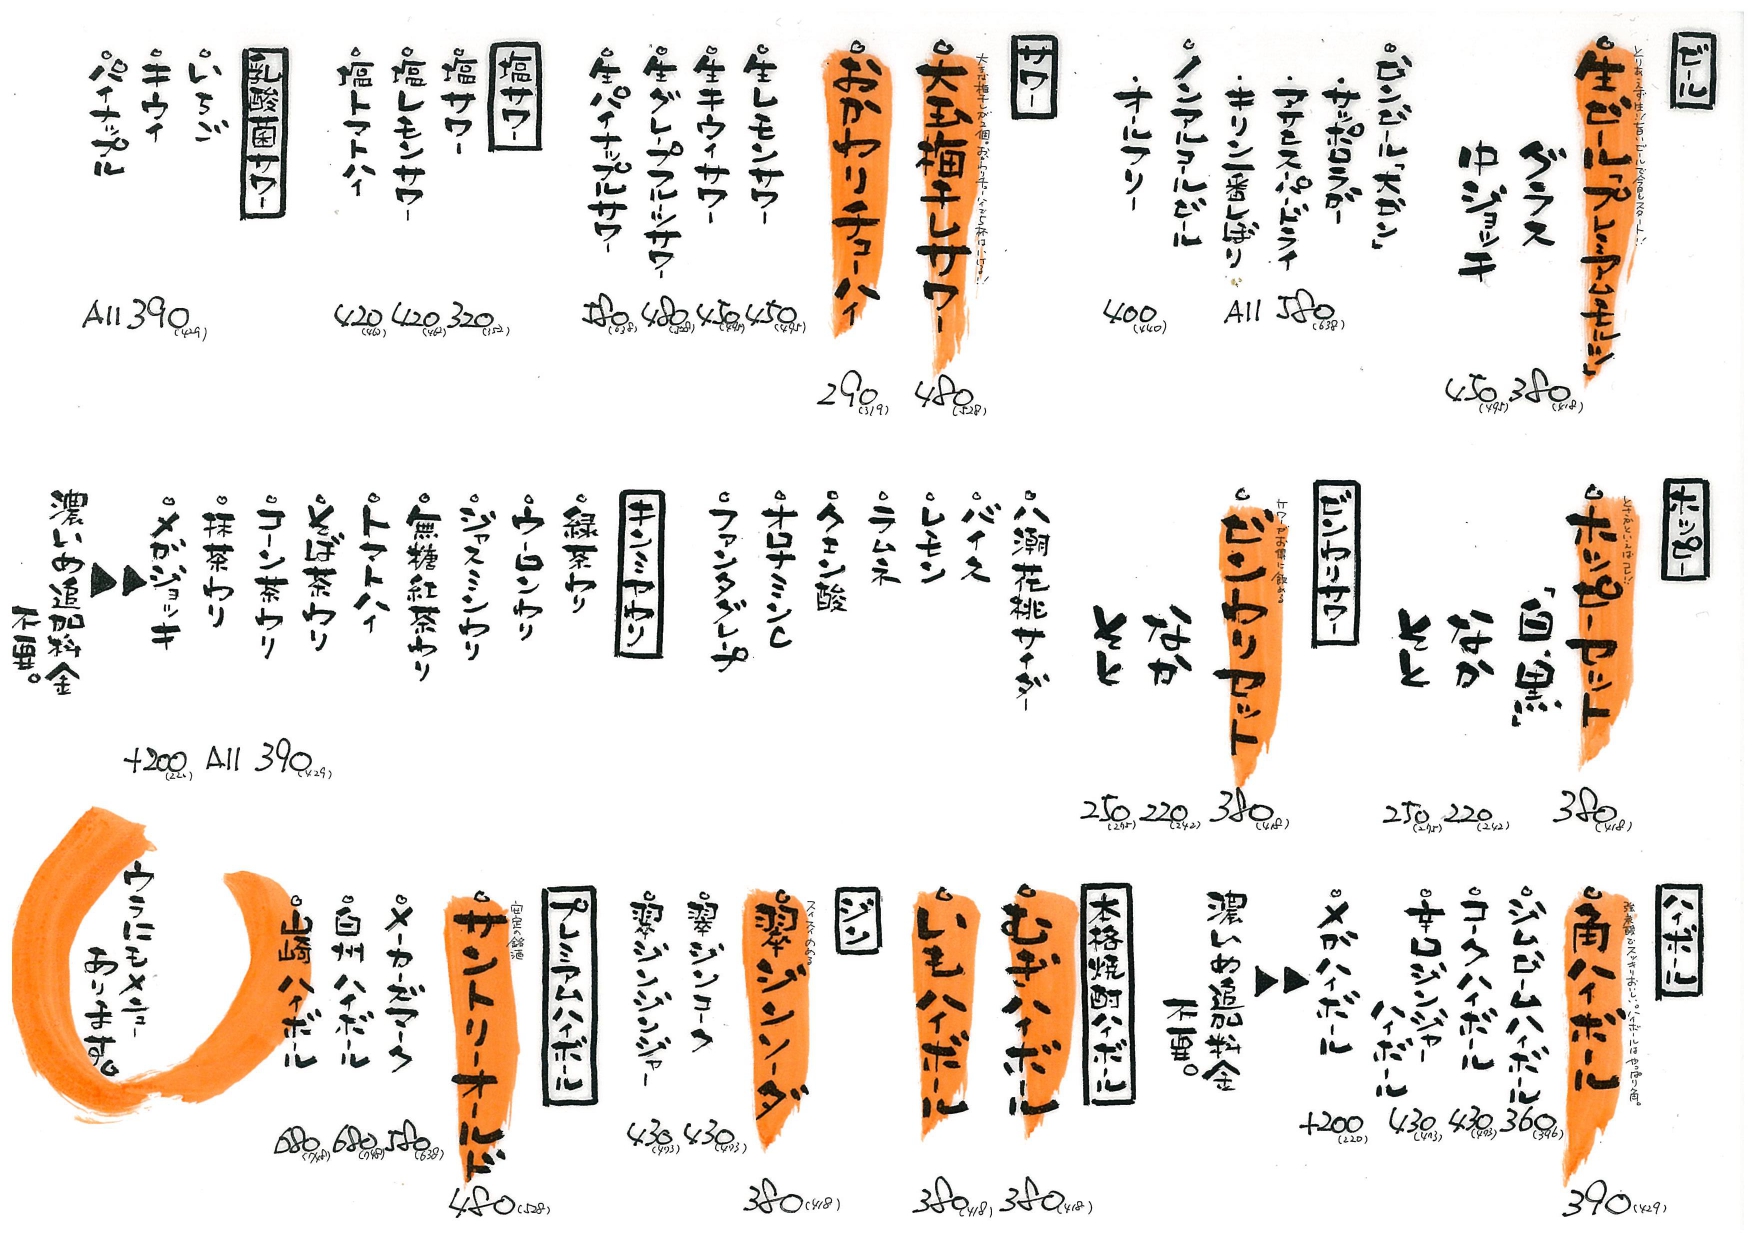 ビール
とりあえず生!!旨いビールで今日もスタート!!
生ビール「プレミアムモルツ」
グラス
中ジョッキ
380(418)
450(495)
ビンビール「大ビン」
・サッポロラガー
・アサヒスーパードライ
・キリン一番しぼり
All 580(638)
ノンアルコールビール
・オールフリー
400(440)
サワー
大きな梅干しが2個。おかわりチューハイで5杯はいける!!
大玉梅干しサワー
480(528)
おかわりチューハイ
290(319)
生レモンサワー
450(495)
生キウイサワー
450(495)
生グレープフルーツサワー
480(528)
生パイナップルサワー
580(638)
塩サワー
塩サワー
320(352)
塩レモンサワー
420(462)
塩トマトハイ
420(462)
乳酸菌サワー
いちご
キウイ
パイナップル
All 390(429)
ホッピー
ホッピーセット
380(418)
「白、黒」
なか
220(242)
そと
250(275)
ビンワリサワー
サワーがお得に飲める
ビンワリセット
380(418)
なか
220(242)
そと
250(275)
八潮花桃サイダー
バイス
レモン
ラムネ
クエン酸
オロナミンC
ファンタグレープ
キンミヤワリ
緑茶わり
ウーロンわり
ジャスミンわり
無糖紅茶わり
トマトハイ
そば茶わり
コーン茶わり
抹茶わり
All 390(429)
メガジョッキ
+200(220)
▶▶濃いめ追加料金
不要。
ハイボール
強炭酸でスッキリおいしい。ハイボールはやっぱり角。
角ハイボール
390(429)
ジムビームハイボール
360(396)
コークハイボール
430(473)
辛口ジンジャー
ハイボール
430(473)
メガハイボール
+200(220)
▶▶濃いめ追加料金
不要。
本格焼酎ハイボール
むぎハイボール
380(418)
いもハイボール
380(418)
ジン
スイスイのめる
翠ジンソーダ
380(418)
翠ジンコーク
430(473)
翠ジンジンジャー
430(473)
プレミアムハイボール
安定の銘酒
サントリーオールド
480(528)
メーカーズマーク
580(638)
白州ハイボール
680(748)
山崎ハイボール
680(748)
ウラにもメニュー
あります。